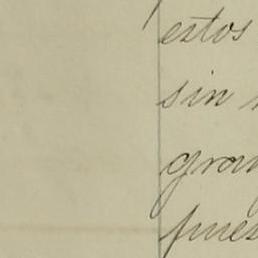 estos
sin
gran
pues